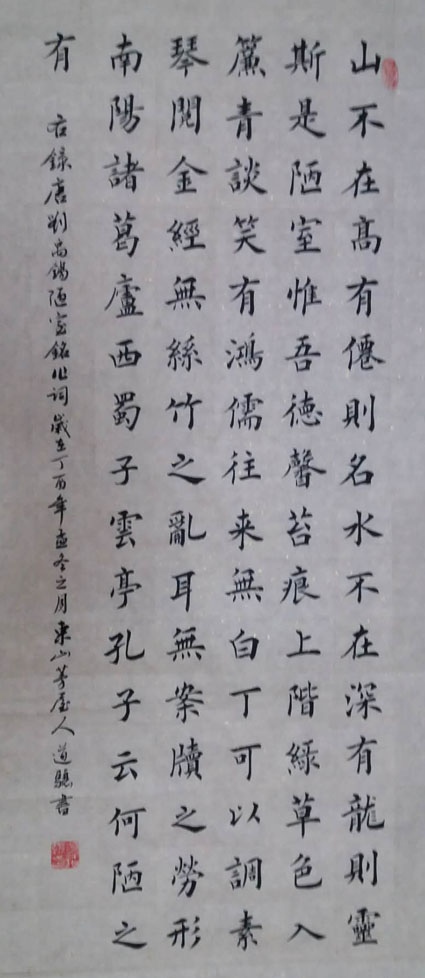 山不在高有僊則名水不在深有龍則靈
斯是陋室惟吾德馨苔痕上階綠草色入
簾青談笑有鴻儒往来無白丁可以調素
琴閱金經無絲竹之亂耳無案牘之勞形
南陽諸葛廬西蜀子雲亭孔子云何陋之
有
右録唐劉禹錫陋室銘化词歲在丁酉年孟冬之月東山芳屋人道驄書